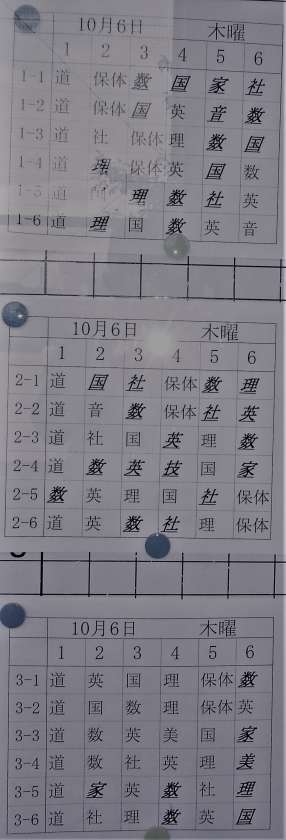 10月6日 木曜
1 2 3 4 5 6
1-1 道 保体 数 国 家 社
1-2 道 保体 国 英 音 数
1-3 道 社 保体 理 数 国
1-4 道 理 保体 英 国 数
1-5 道 理 数 社 英
1-6 道 理 国 数 英 音
10月6日 木曜
1 2 3 4 5 6
2-1 道 国 社 保体 数 理
2-2 道 音 数 保体 社 英
2-3 道 社 国 英 理 数
2-4 道 数 英 技 国 家
2-5 数 英 理 国 社 保体
2-6 道 英 数 社 理 保体
10月6日 木曜
1 2 3 4 5 6
3-1 道 英 国 理 保体 数
3-2 道 国 数 理 保体 英
3-3 道 数 英 美 国 家
3-4 道 数 社 英 理 美
3-5 道 家 英 数 社 理
3-6 道 社 理 数 英 国